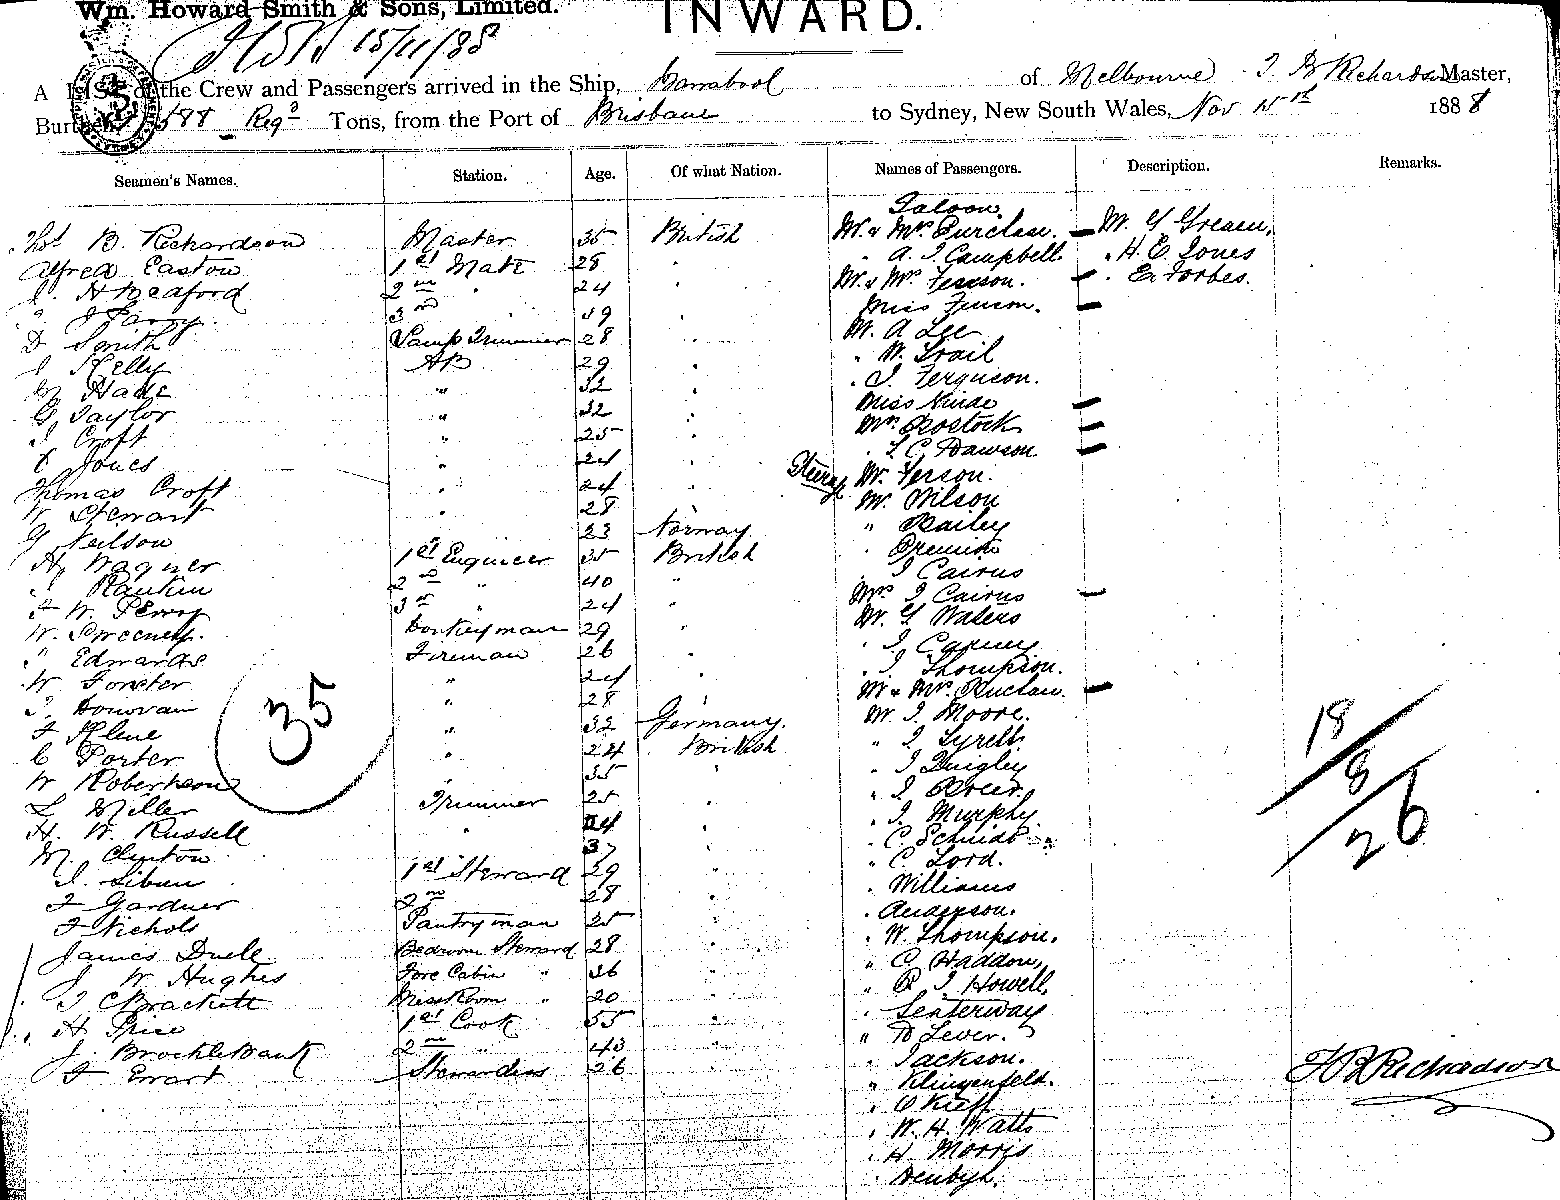 Wm. Howard Smith & Sons, Limited.
INWARD.
15/11/88
A LIST of the Crew and Passengers arrived in the Ship, Barrabool of Melbourne T B Richardson Master,
Burthen 588 Regd Tons, from the Port of Brisbane to Sydney, New South Wales, Nov 15th 1888
Seamen's Names. Station. Age. Of what Nation. Names of Passengers. Description. Remarks.
Saloon
Thos B. Richardson Master 35 British Mr. & Mrs Purchase. Mr. G Green,
Alfred Easton 1st Mate 28 " " A. J Campbell. " H. E. Jones
J. H Bedford 2nd " 24 " Mr. & Mrs Ferson. " E. Forbes.
J Parry 3rd 39 " Miss Ferson.
D Smith Lamp Trimmer 28 " Mr. A Lee
J Kelly AB 29 " " W. Trail
M Hade " 32 " " J. Ferguson.
G Taylor " 32 " Miss Hinde
J Croft " 25 " Mrs Bostock
C Jones " 24 " " L C Dawson.
Thomas Croft " 24 " Steerage Mr. Ferson.
W Stewart " 28 " Mr. Wilson
G Neilson 23 Norway " Bailey
H. Wagner 1st Engineer 35 British "
J Rankin 2nd " 40 " " J Cairns
F W. Perry 3rd " 24 " Mrs J Cairns
W. Sweeney. Donkeyman 29 " Mr. G Waters
" Edwards Fireman 26 " " J.
W Forster " 24 " " J. Thompson.
J. Donovan " 28 " Mr & Mrs
F Klene " 32 Germany. Mr. J. Moore.
C Porter " 24 British " J Tyrell
W Robertson " 35 " " J Quigley
L Miller Trimmer 25 " " J Brier.
H. W. Russell " 24 " " J. Murphy.
M. Clinton 37 " " C. Schmidt
J. 1st Steward 29 " " C. Lord.
F Gardner 2nd 28 " " Williams
F Nichols Pantryman 25 " " Anderson.
James Duell Bedroom Steward 28 " " W. Thompson.
J. W. Hughes Fore Cabin " 36 " " C. Haddon,
J C Brackett Mess Room " 20 " " R J Howell,
H Spice 1st Cook 55 " " Senterway
J. Brocklebank 2nd " 43 " " D Lever.
F Ewart Stewardess 26 " " Jackson.
" Klingenfeld.
" O Kieff
" W. H. Watts
" H Morris
" Denbigh.
35
18
8
26
T B Richardson